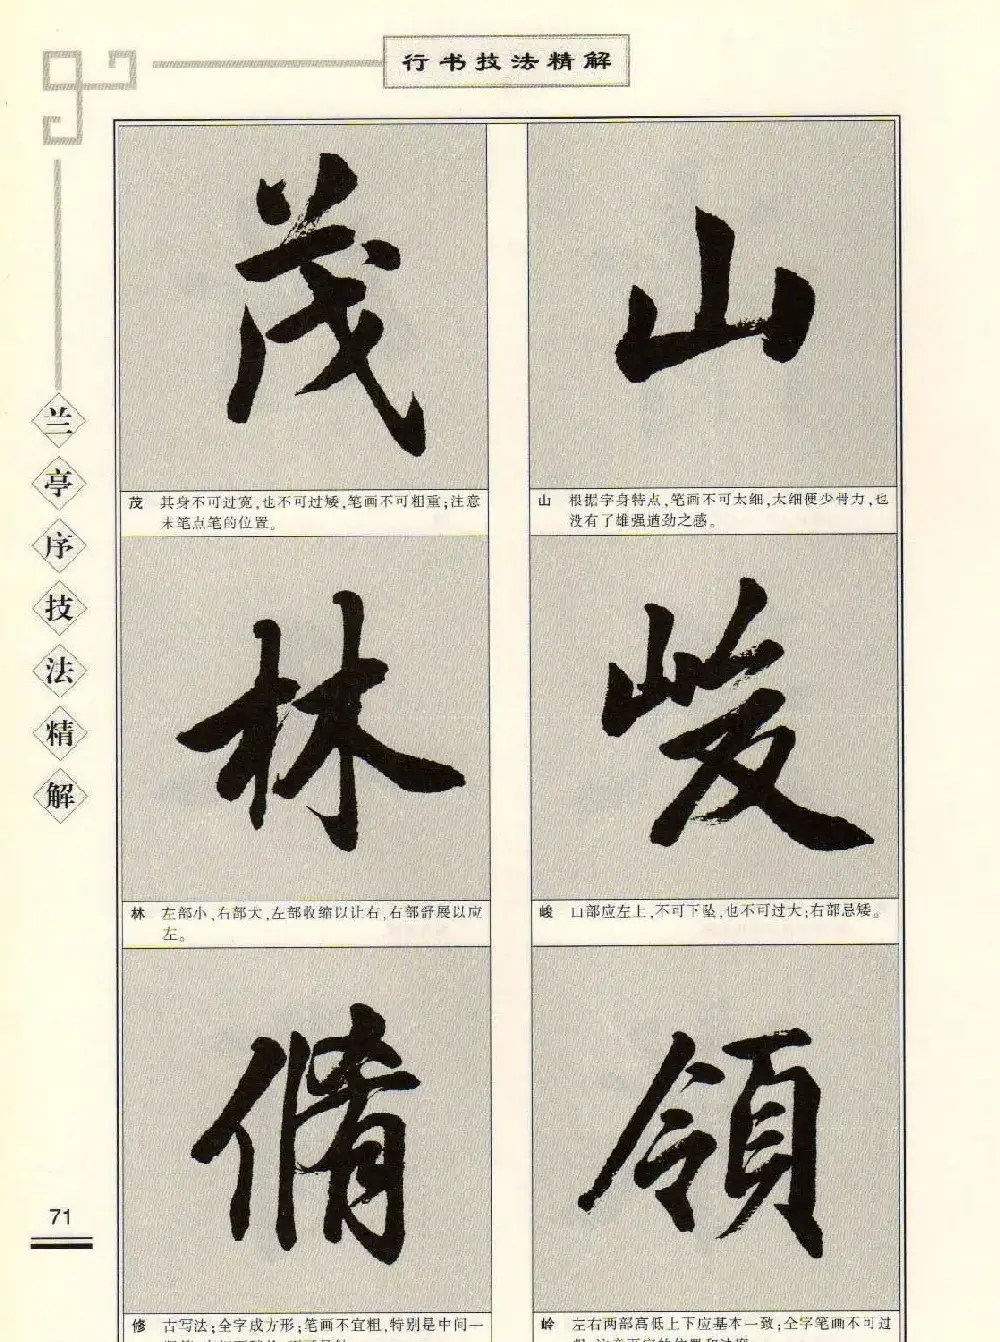 行书技法精解
兰亭序技法精解
山
山 根据字身特点,笔画不可太细,太细便少骨力,也
没有了雄强遒劲之感。
峻
峻 山部应左上,不可下坠,也不可过大;右部忌矮。
領
岭 左右两部高低上下应基本一致;全字笔画不可过
茂
茂 其身不可过宽,也不可过矮,笔画不可粗重;注意
末笔点笔的位置。
林
林 左部小,右部大,左部收缩以让右,右部舒展以应
左。
脩
修 古写法;全字成方形;笔画不宜粗,特别是中间一
71